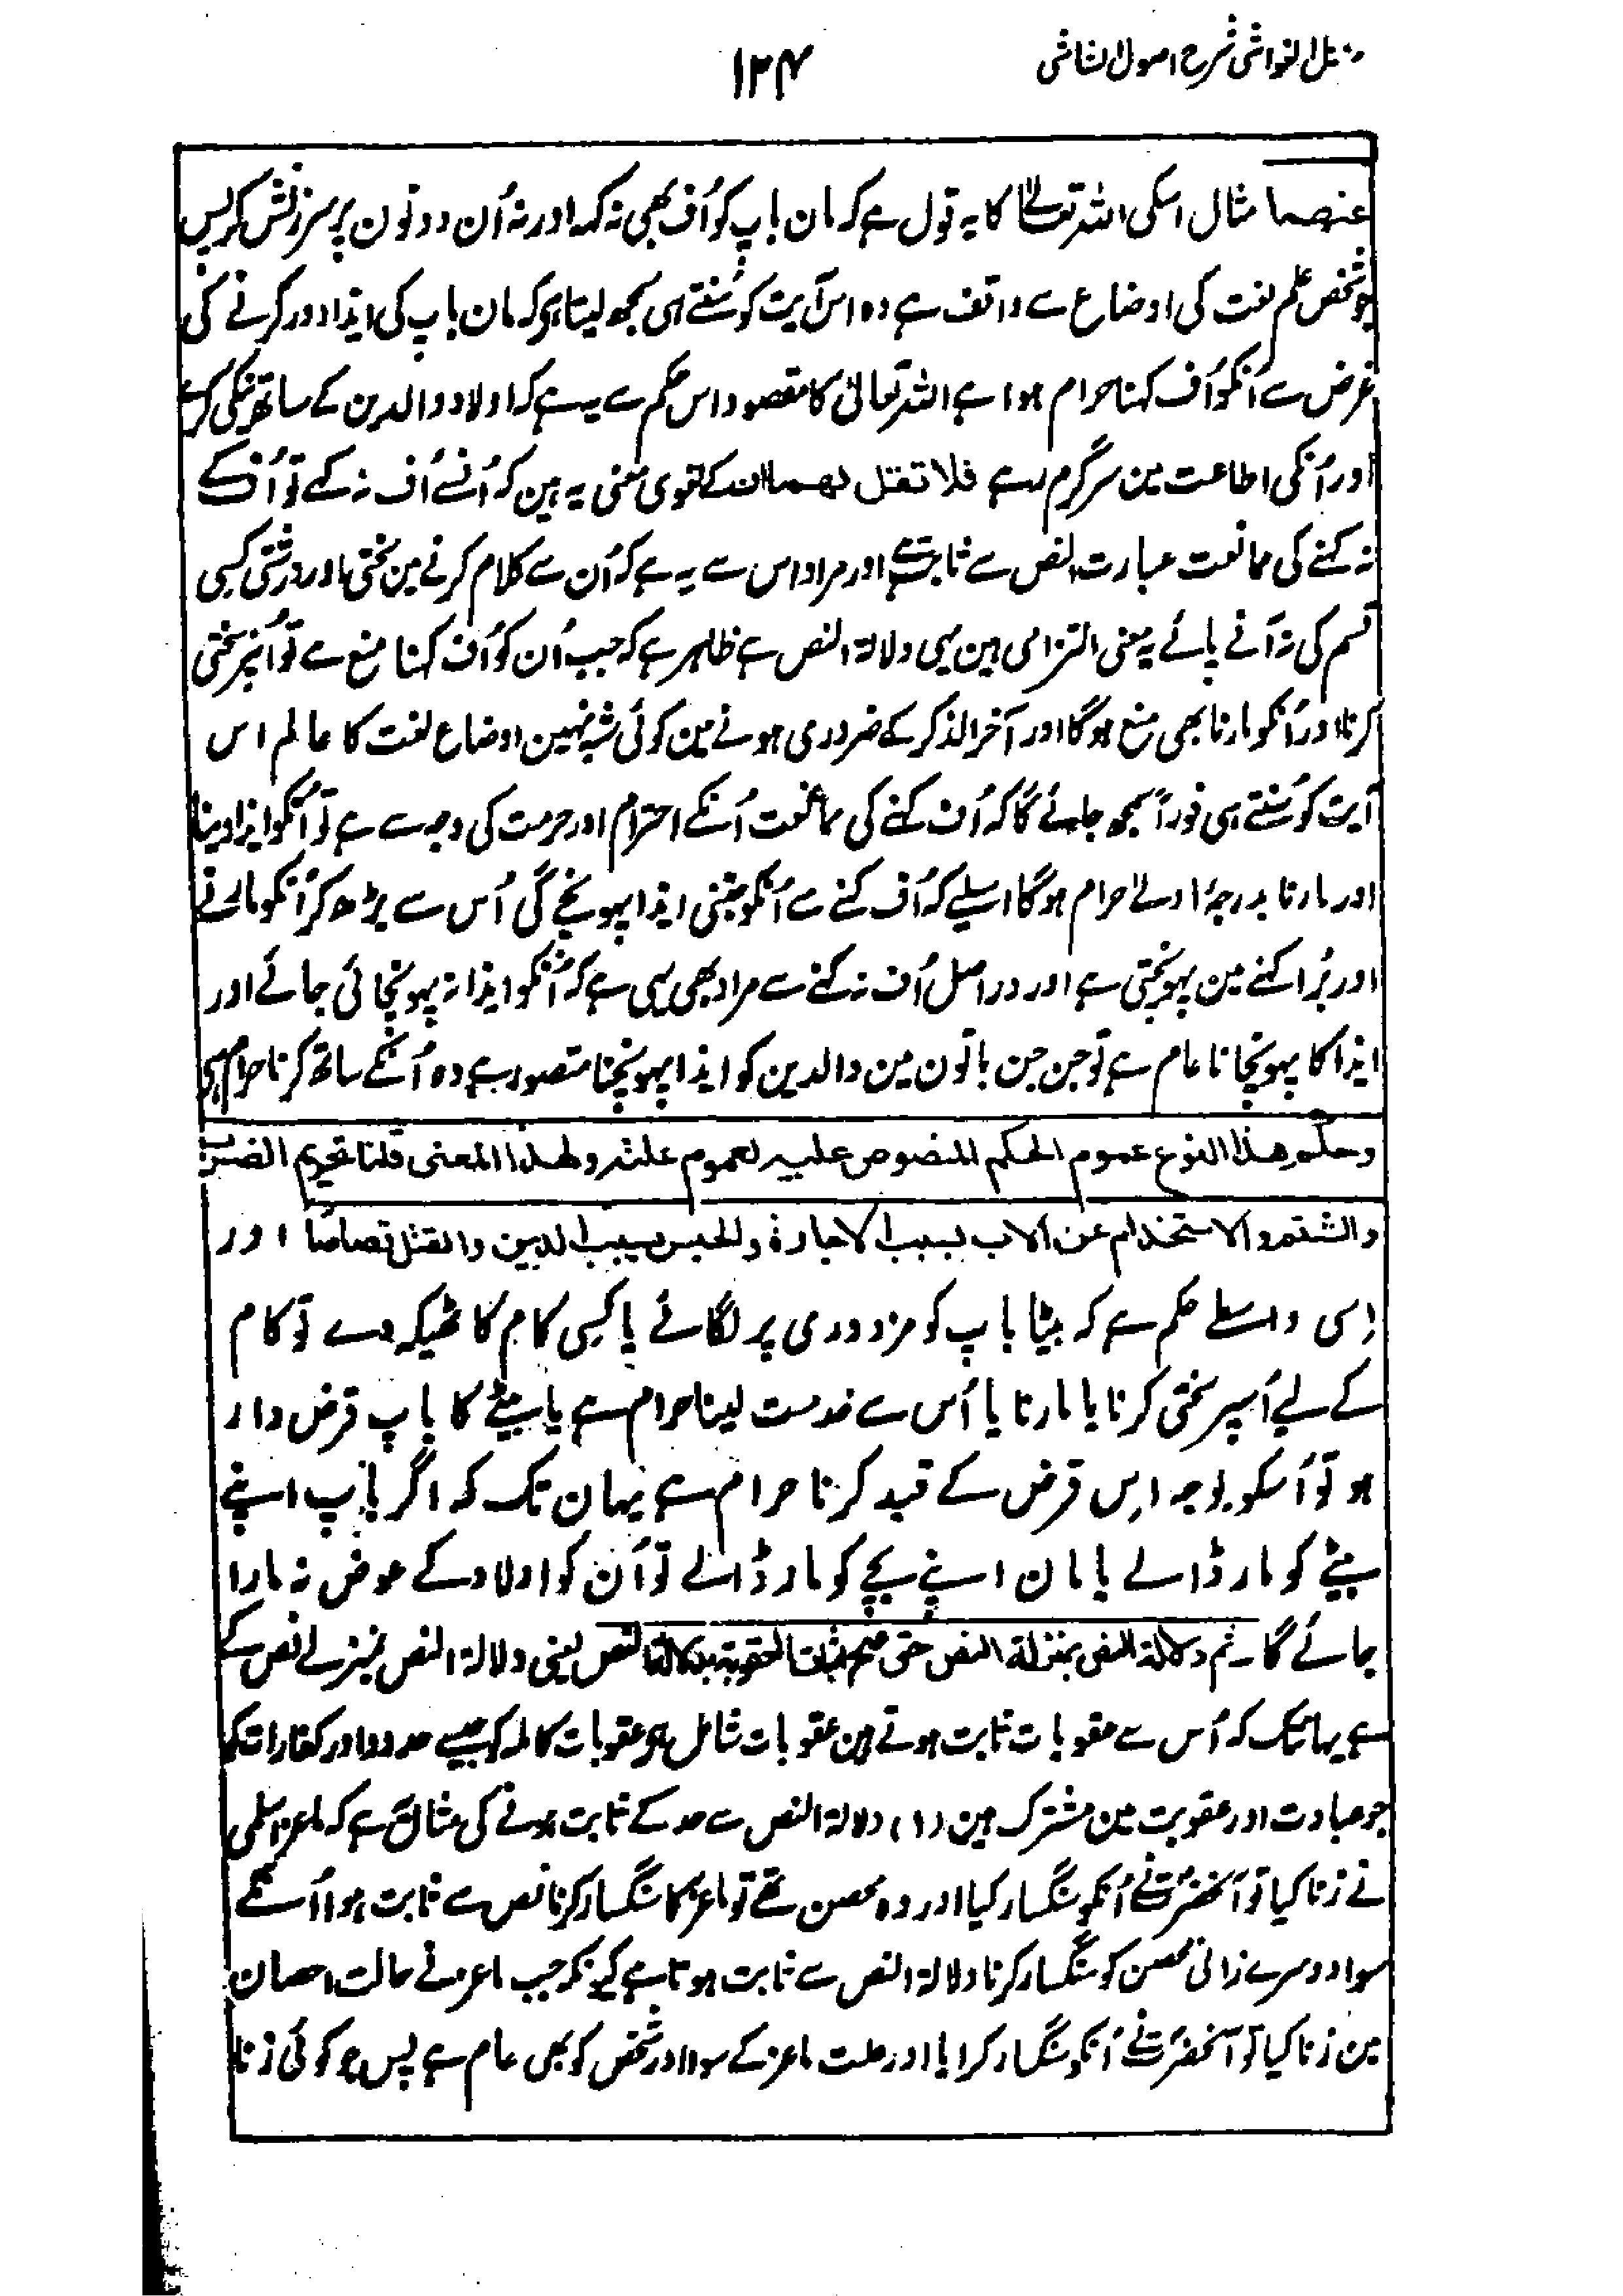 مزیل الغواشی شرح اصول الشاشی
۱۲۴
عنهما مثال اسکی اللہ تعالےٰ کا یہ قول ہے کہ مان باپ کو اُف بھی نہ کہہ اور نہ اُن دونون پر سرزنش کر پس
جو شخص علم لغت کی اوضاع سے واقف ہے وہ اس آیت کو سُنتے ہی سمجھ لیتا ہی کہ مان باپ کی ایذا دور کرنے کی
غرض سے اُنکو اُف کہنا حرام ہوا ہے اللہ تعالیٰ کا مقصود اس حکم سے یہ ہے کہ اولاد والدین کے ساتھ نیکی کرے
اور اُنکی اطاعت مین سرگرم رہے فلا تقل لهما اف کے لغوی معنی یہ ہین کہ اُنسے اُف نہ کہے تو اُف کے
نہ کہنے کی ممانعت عبارت النص سے ثابت ہے اور مراد اس سے یہ ہے کہ اُن سے کلام کرنے مین سختی اور درشتی کسی
قسم کی نہ آنے پائے یہ معنی التزامی ہین یہی دلالۃ النص ہے ظاہر ہے کہ جب اُن کو اُف کہنا منع ہے تو اُنپر سختی
کرنا اور اُنکو مارنا بھی منع ہوگا اور آخر الذکر کے ضروری ہونے مین کوئی شبہ نہین اوضاع لغت کا عالم اس
آیت کو سُنتے ہی فوراً سمجھ جائے گا کہ اُف کہنے کی ممانعت اُنکے احترام اور حرمت کی وجہ سے ہے تو اُنکو ایذا دینا
اور مارنا بدرجۂ اولےٰ حرام ہوگا اسلیے کہ اُف کہنے سے اُنکو جتنی ایذا پہونچے گی اُس سے بڑھ کر اُنکو مارنے
اور بُرا کہنے مین پہونچتی ہے اور دراصل اُف نہ کہنے سے مراد بھی یہی ہے کہ اُنکو ایذا نہ پہونچائی جائے اور
ایذا کا پہونچانا عام ہے تو جن جن باتون مین والدین کو ایذا پہونچنا متصور ہے وہ اُنکے ساتھ کرنا حرام ہی
وحکم هذا النوع عموم الحکم المنصوص علیه لعموم علته ولهذا المعنی قلنا تحریم الضرب
والشتم والاستخدام عن الاب بسبب الاجارة والحبس بسبب الدین والقتل قصاصًا اور
اِسی واسطے حکم ہے کہ بیٹا باپ کو مزدوری پر لگائے یا کسی کام کا ٹھیکہ دے تو کام
کے لیے اُسپر سختی کرنا یا مارنا یا اُس سے خدمت لینا حرام ہے یا بیٹے کا باپ قرض دار
ہو تو اُسکو بوجہ اِس قرض کے قید کرنا حرام ہے یہان تک کہ اگر باپ اپنے
بیٹے کو مار ڈالے یا مان اپنے بچے کو مار ڈالے تو اُن کو اولاد کے عوض نہ مارا
جائے گا۔ ثم دلالة النص بمنزلة النص حتی صح اثبات العقوبة بدلالة النص یعنی دلالۃ النص بمنزلے نص کے
ہے یہانتک کہ اُس سے عقوبات ثابت ہوتے ہین عقوبات شامل ہی عقوبات کاملہ کو جیسے حدود اور کفارات کو
جو عبادت اور عقوبت مین مشترک ہین (۱) دلالۃ النص سے حد کے ثابت ہونے کی مثال یہ ہے کہ ماعز اسلمی
نے زنا کیا تو آنحضرت نے اُنکو سنگسار کیا اور وہ محصن تھے تو ماعز کا سنگسار کرنا نص سے ثابت ہوا اُسکے
سوا دوسرے زانی محصن کو سنگسار کرنا دلالۃ النص سے ثابت ہوتا ہے کیونکہ جب ماعز نے حالت احصان
مین زنا کیا تو آنحضرت نے اُنکو سنگسار کرایا اور علت ماعز کے سوا اور شخص کو بھی عام ہے پس جو کوئی زنا